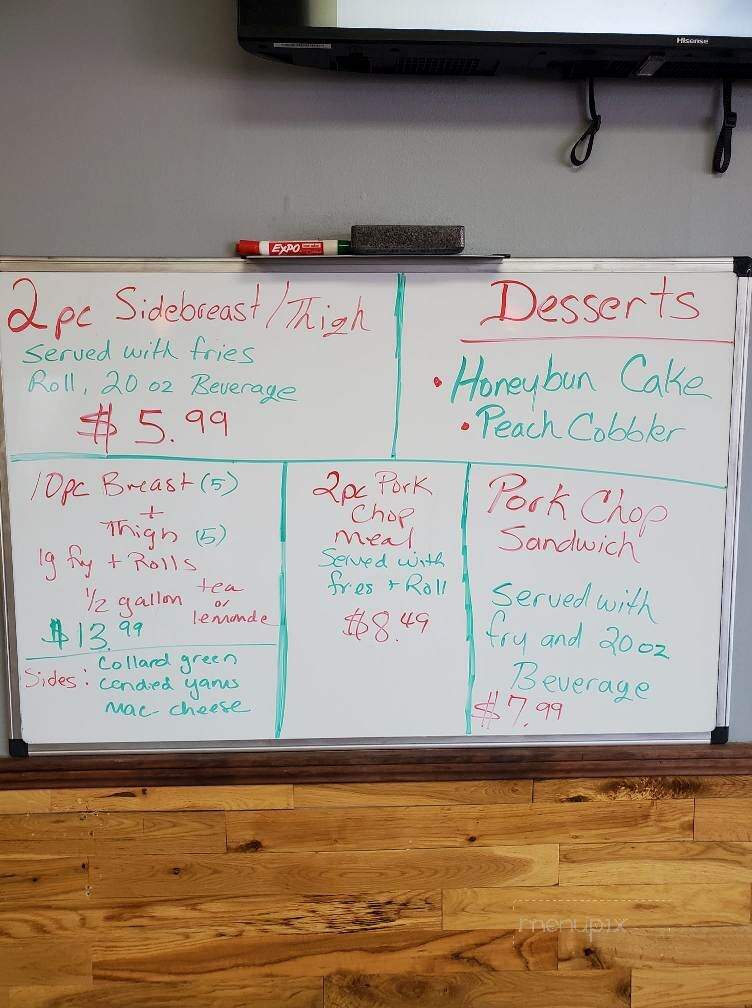 Hisense
EXPO
2pc Sidebreast/Thigh
Served with fries
Roll, 20 oz Beverage
$5.99
Desserts
• Honeybun Cake
• Peach Cobbler
10pc Breast (5)
+
Thigh (5)
lg fry + Rolls
1/2 gallon tea
or
lemonde
$13.99
Sides: Collard green
Candied yams
Mac cheese
2pc Pork
Chop
Meal
Served with
fries + Roll
$8.49
Pork Chop
Sandwich
Served with
fry and 20oz
Beverage
$7.99
menupix